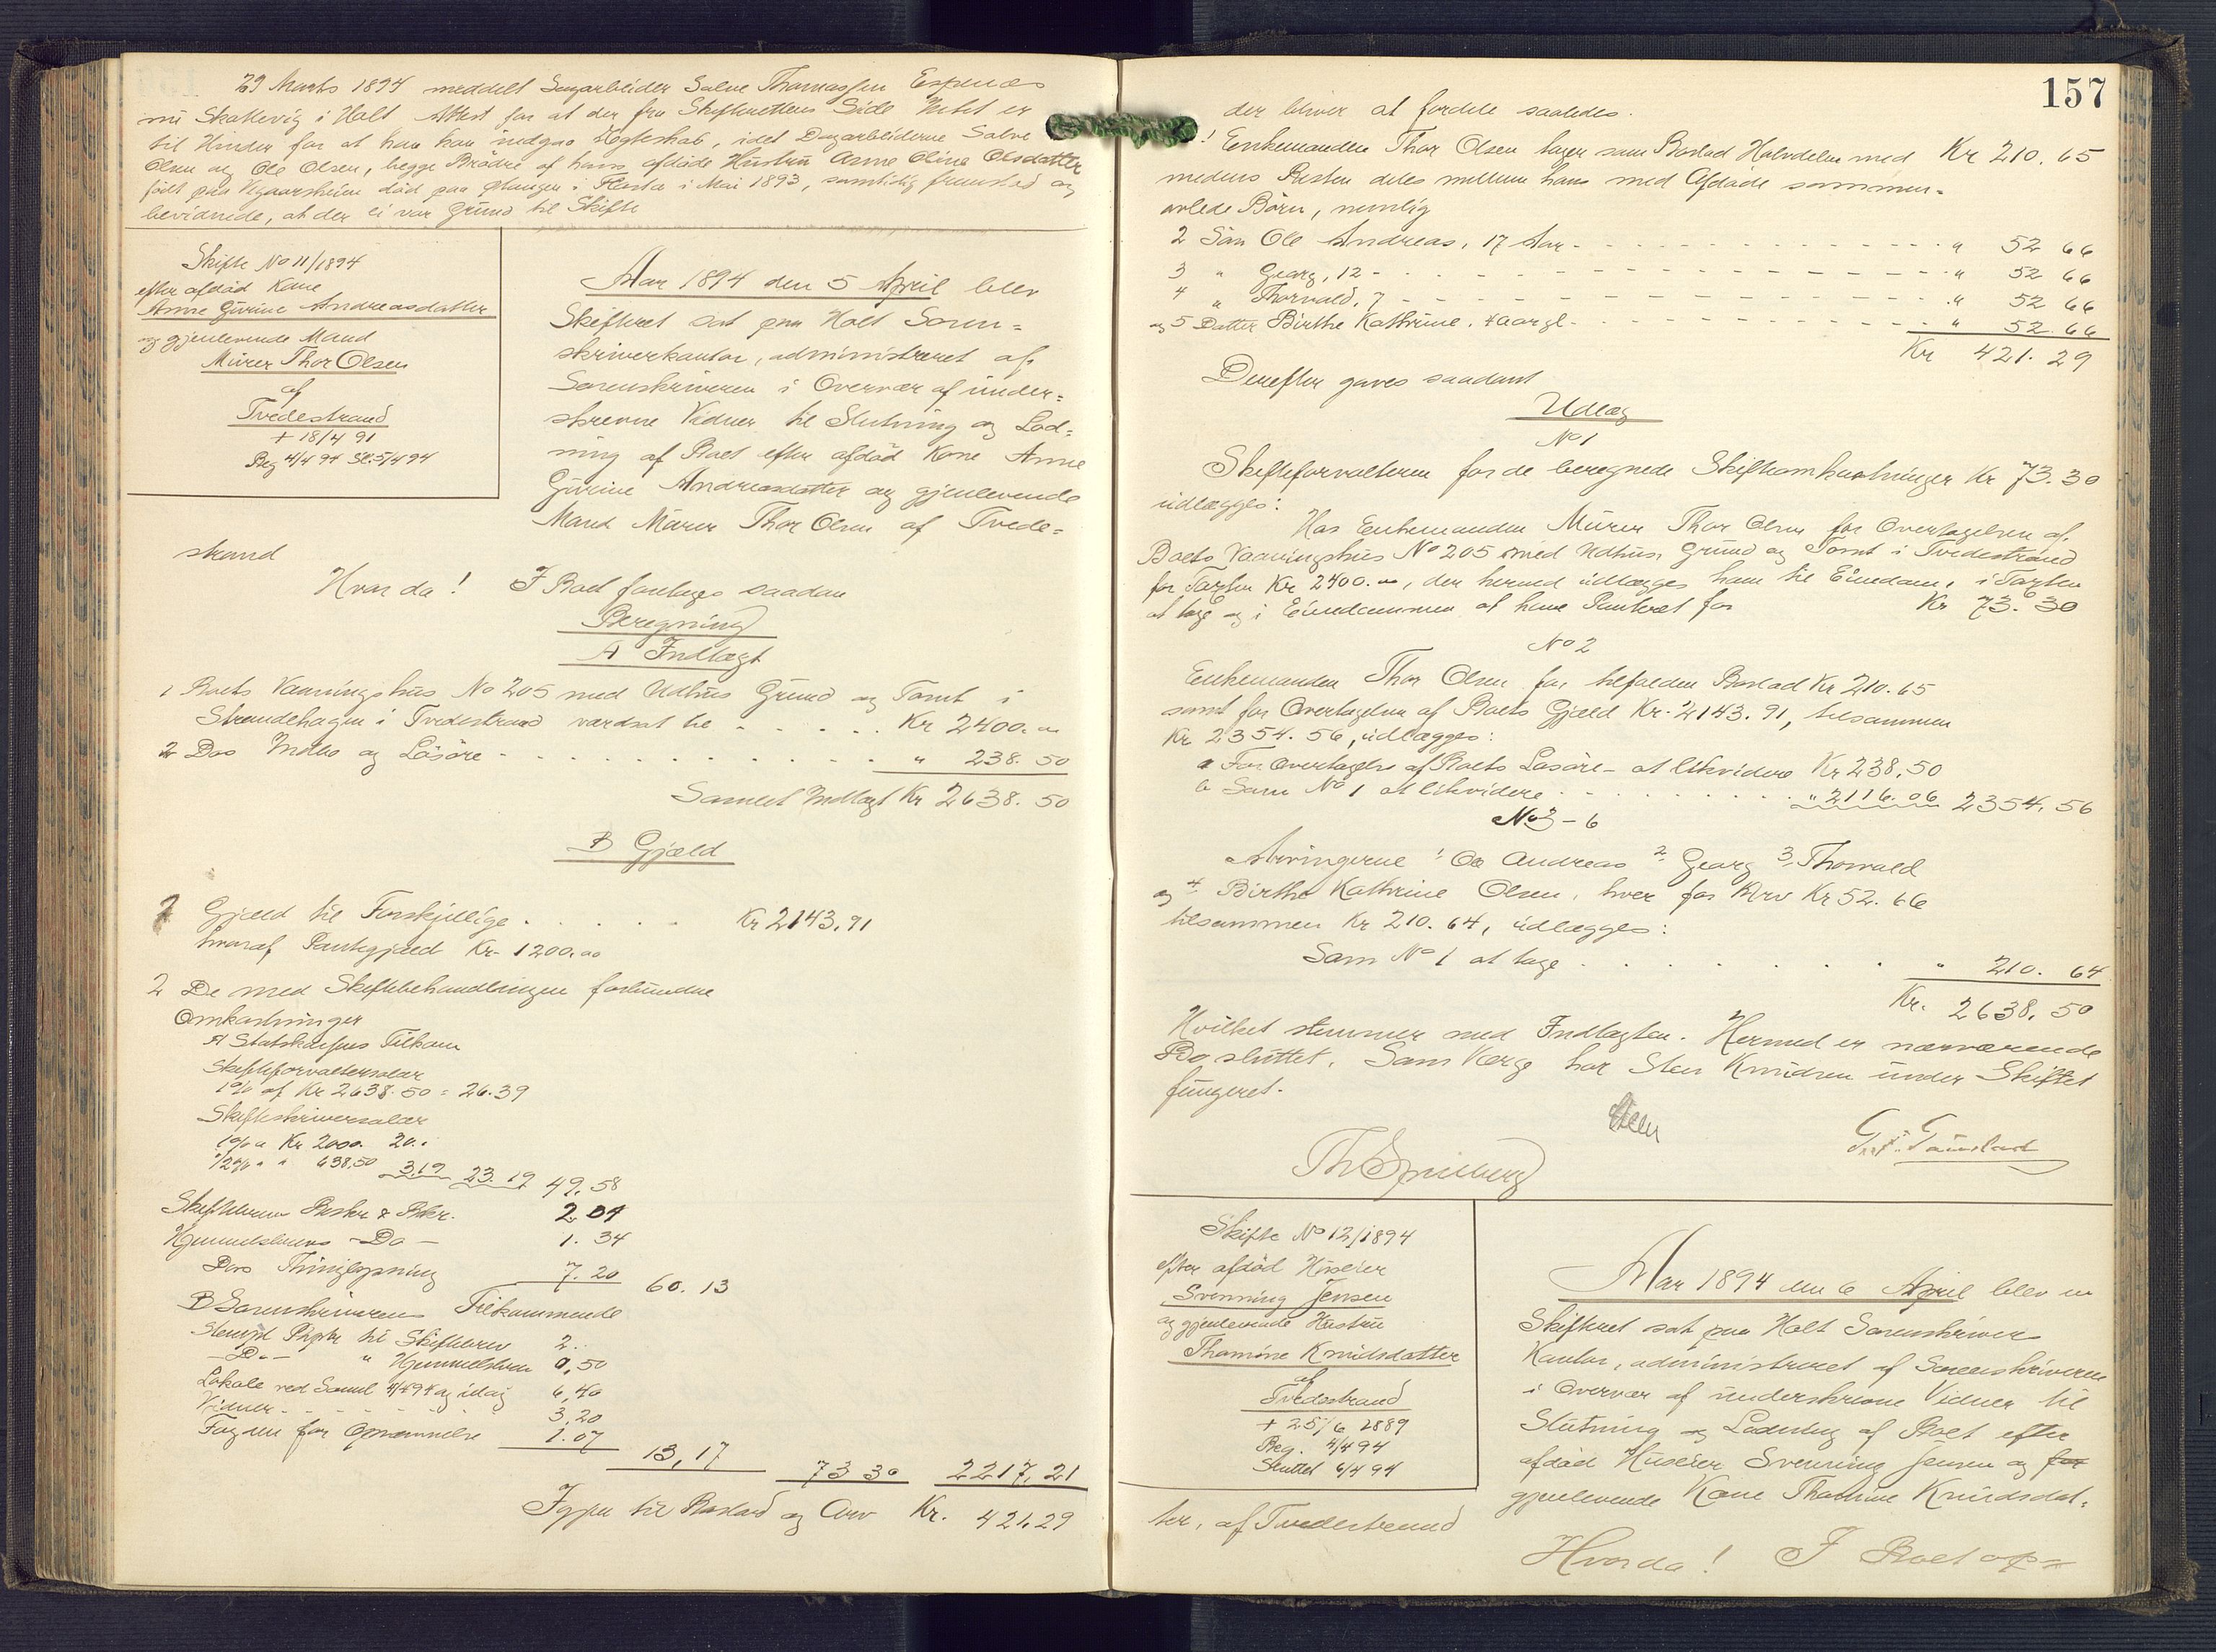 29 Marts 1894 meddelt Dagarbeider Salve Thomassen Espenæs
nu Skatlevig i Holt Attest for at der fra Skifterettens Side Intet er
til Hinder for at han kan indgaa Ægteskab, idet Dagarbeiderne Salve
Olsen og Ole Olsen, begge Brødre af hans afdøde Hustru Anne Oline Olsdatter
født paa death paa i Flosta i Mai 1893, samtidig fremstod og
bevidnede, at der ei var Grund til Skifte
Skifte No 11/1894
efter afdød Kone
Anne Gurine Andreasdatter
og gjenlevende Mand
Murer Thor Olsen
af
Tvedestrand
+ 18/4 91
Beg 4/4 94 Sl. 5/4 94
Aar 1894 den 5 April blev
Skifteret sat paa Holt Soren=
skriverkontor, administreret af
Sorenskriveren i Overvær af under=
skrevne Vidner til Slutning og Lod=
ning af Boet efter afdød Kone Anne
Gurine Andreasdatter og gjenlevende
Mand Murer Thor Olsen af Tvede=
strand
Hvor da! I Boet foretages saadan
Beregning
A Indtægt
1 Boets Vaaningshus No 205 med Udhus Grund og Tomt i
Strandehagen i Tvedestrand værdsat til - . . . . Kr 2400. "
2 Dos Indbo og Løsøre - . . . . . . . . . " 238. 50
Samlet Indtægt Kr 2638. 50
B Gjæld
1 Gjæld til Forskjellige . . . . . Kr 2143,91
hvoraf Pantegjæld Kr 1200,00
2 De med Skiftebehandlingen forbundne
Omkostninger
A Statskassens Tilkom
Skifteforvaltersalær
1% af Kr 2638.50 = 26.39
Skifteskriversalær
1% a Kr 2000. 20..
1/2% " " 638.50 3.19 23.19 49.58
Skiftebrev Beskr & Pakr. 2 01
Hjemmelsbrevs -Do- 1. 34
Dos Thinglysning 7. 20 60. 13
B Sorenskriverens Tilkommende
Stempl Papir til Skiftebrev 2..
-Do- " Hjemmelsbrev 0,50
Lokale ved Saml 4/4 94 og idag 6,40
Vidner - - - - - - 3,20
Fogden for Opnævnelse 1.07
13,17 73 30 2217,21
Igjen til Boslod og Arv Kr. 421.29
157
der bliver at fordele saaledes.
1 Enkemanden Thor Olsen tager som Boslod Halvdelen med Kr 210. 65
medens Resten deles mellem hans med Afdøde sammen=
avlede Børn, nemlig
2 Søn Ole Andreas, 17 Aar - - - - - - - - " 52 66
3 " Georg, 12 - - - - - - - - - - " 52 66
4 " Thorvald, 7 - - - - - - - - - - " 52 66
og 5 Datter Birthe Kathrine, aar gl. - - - - - - " 52.66
Kr 421. 29
Derefter gaves saadant
Udlæg
No 1
Skifteforvalteren for de beregnede Skifteomkostninger Kr 73.30
udlægges:
Hos Enkemanden Murer Thor Olsen for Overtagelsen af
Boets Vaaningshus No 205 med Udhus, Grund og Tomt i Tvedestrand
for Taxten Kr 2400.", der herved udlægges ham til Eiendom, i Taxten
at tage og i Eiendommen at have Panteret for Kr 73. 30
No 2
Enkemanden Thor Olsen for tilfalden Boslod Kr 210.65
samt for Overtagelsen af Boets Gjæld Kr. 2143.91, tilsammen
Kr 2354.56, udlægges:
a For Overtagelse af Boets Løsøre - at likvidere Kr 238.50
b Som No 1 at likvidere . . . . . . . " 2116.06 2354.56
No 3 - 6
Arvingerne 1 Ole Andreas 2, Georg 3, Thorvald
og 4 Birthe Kathrine Olsen, hver for Arv Kr 52.66
tilsammen Kr 210.64, udlægges:
Som No 1 at tage . . . . . . . " 210. 64
Kr. 2638. 50
Hvilket stemmer med Indtægten. Hermed er nærværende
Bo sluttet. Som Værge har Sten Knudsen under Skiftet
fungeret.
Skifte No 12/1894
efter afdød Huseier
Svenning Jensen
og gjenlevende Hustru
Thomine Knudsdatter
af
Tvedestrand
+ 25/6 1889
Beg. 4/4 94
Sluttet 6/4 94
Aar 1894 den 6 April blev en
Skifteret sat paa Holt Sorenskriver
Kontor, administreret af Sorenskriveren
i Overvær af underskrevne Vidner til
Slutning og Lodning af Boet efter
afdød Huseier Svenning Jensen og for
gjenlevende Kone Thomine Knudsdat=
ter, af Tvedestrand
Hvorda! I Boet op=